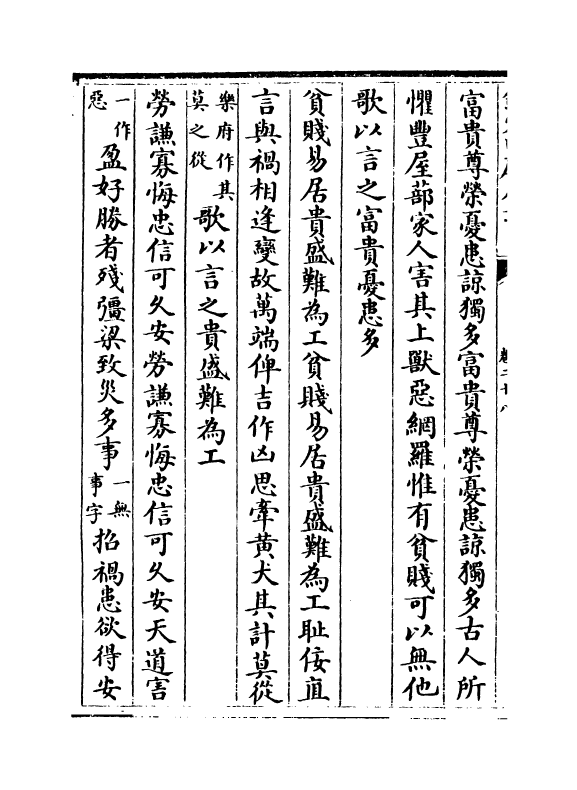 富貴尊榮憂患諒獨多富貴尊榮憂患諒獨多古人所
懼豐屋蔀家人害其上獸惡網羅惟有貧賤可以無他
歌以言之富貴憂患多
貧賤易居貴盛難為工貧賤易居貴盛難為工恥佞直
言與禍相逢變故萬端俾吉作凶思牽黄犬其計莫從
樂府作其
莫之從
歌以言之貴盛難為工
勞謙寡悔忠信可久安勞謙寡悔忠信可久安天道害
一作
惡
盈好勝者殘彊梁致災多事
一無
事字
招禍患欲得安